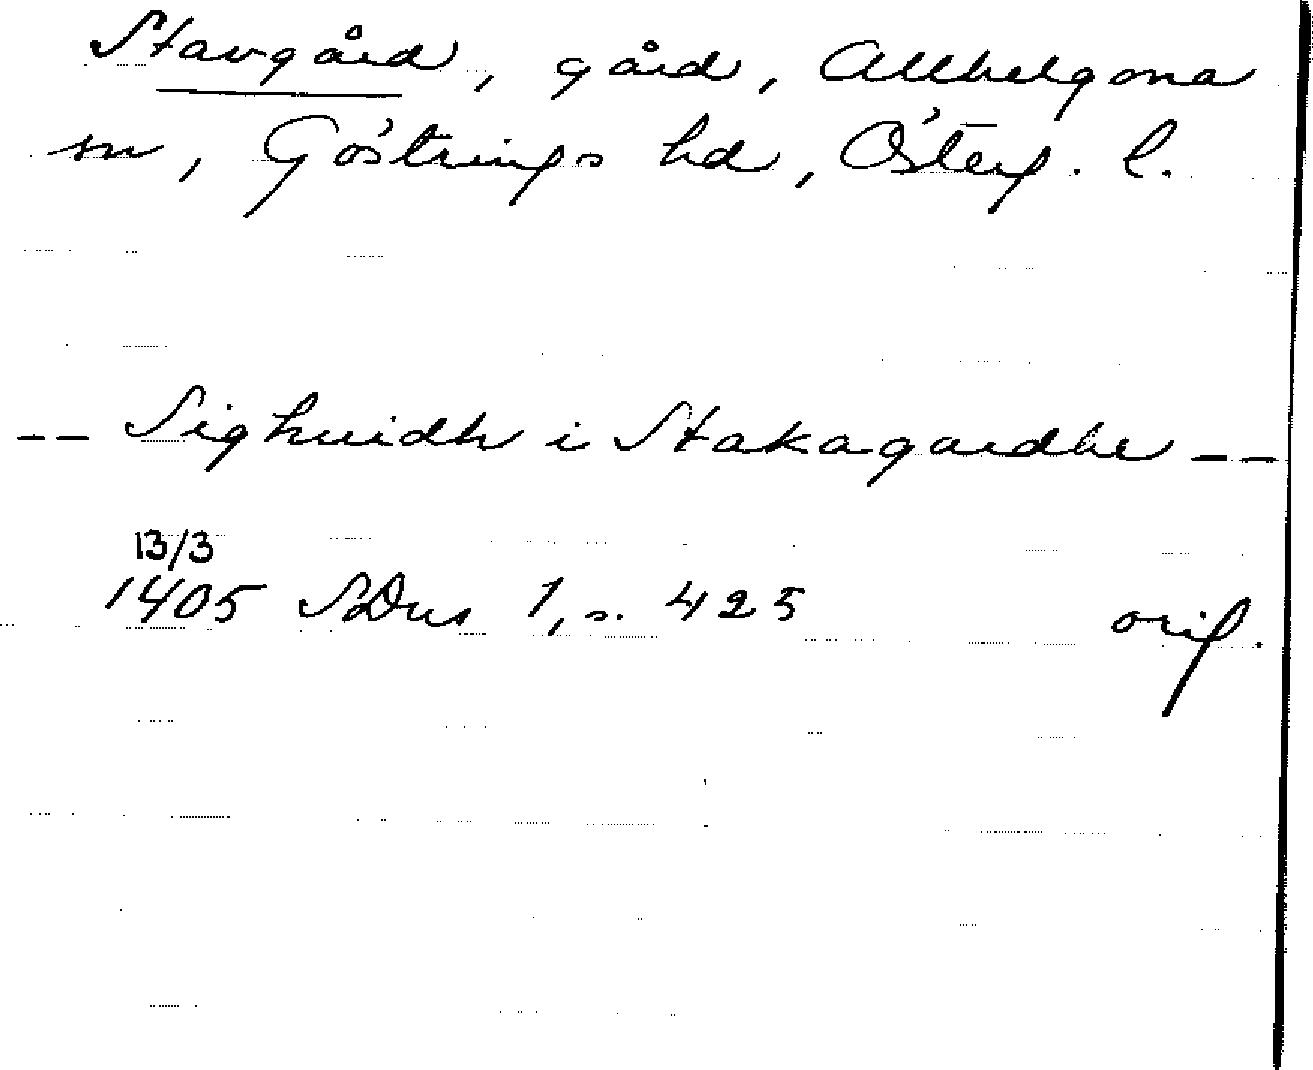 Stavgård, gård, Allhelgona
sn, Göstrings hd, Österg. l.
-- Sighuidh i Stakagardhe --
13/3
1405 SDns 1, s. 425 orig.